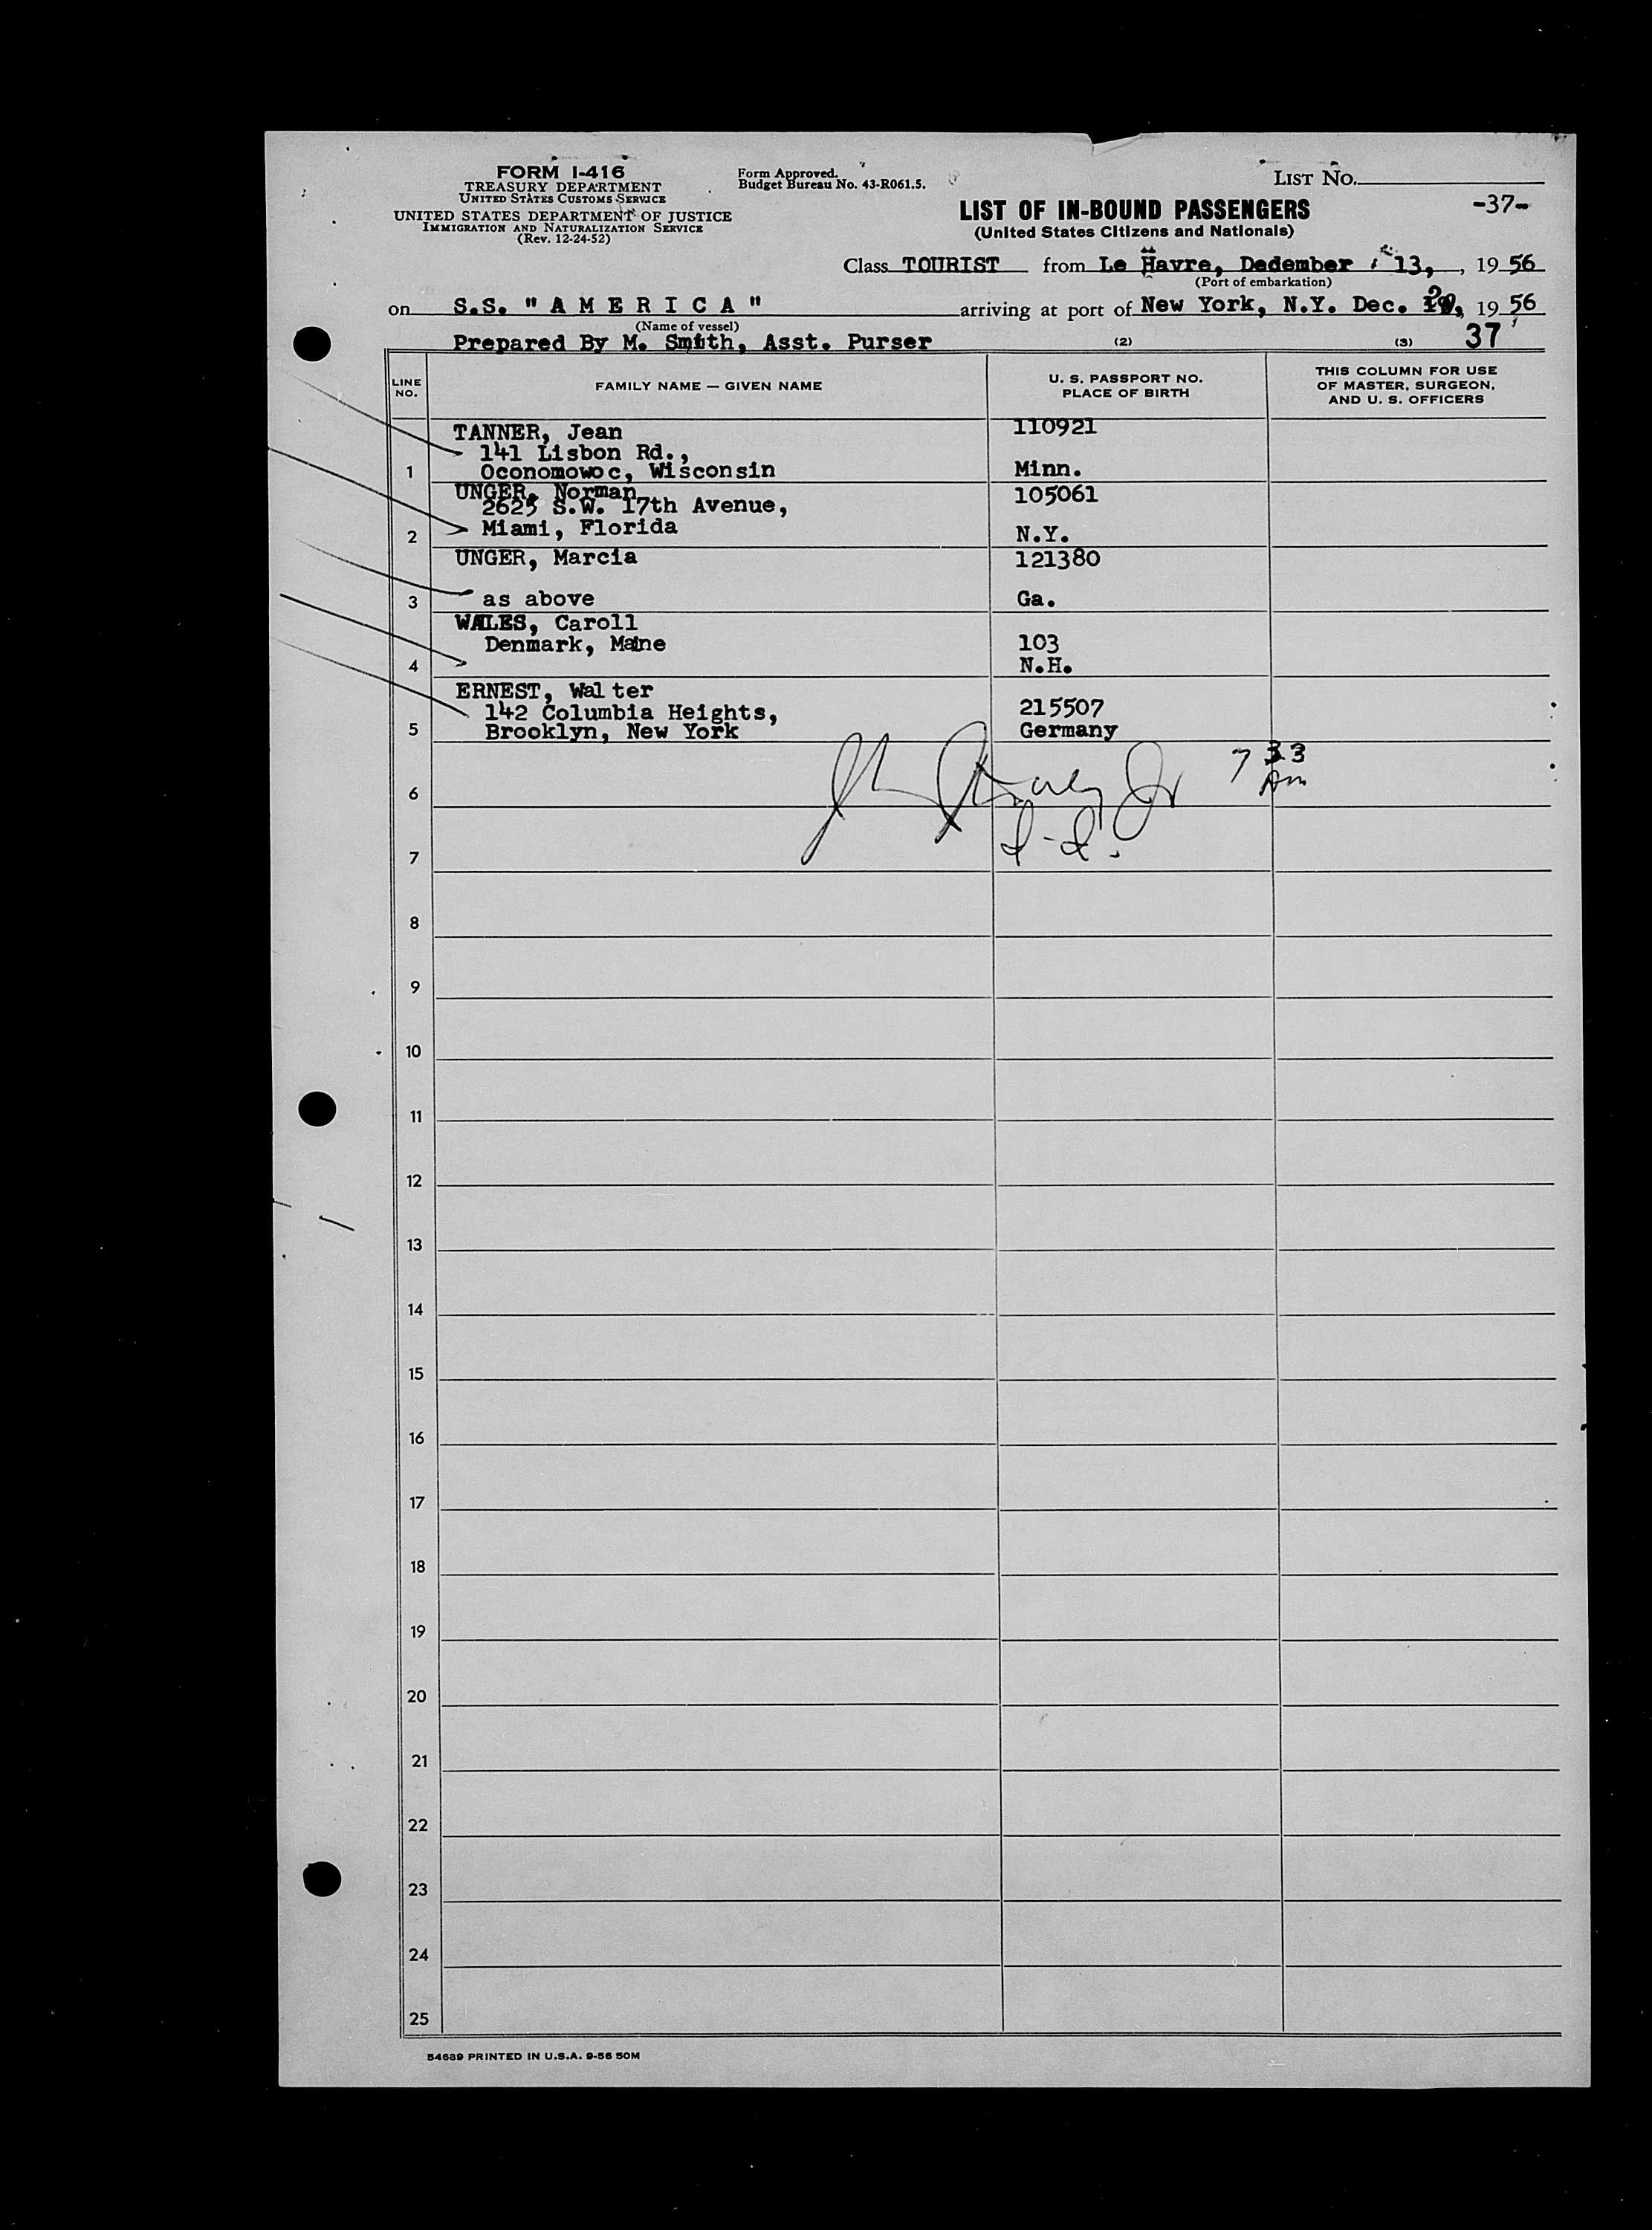 FORM I-416
TREASURY DEPARTMENT
UNITED STATES CUSTOMS SERVICE
UNITED STATES DEPARTMENT OF JUSTICE
IMMIGRATION AND NATURALIZATION SERVICE
(Rev. 12-24-52)
Form Approved.
Budget Bureau No. 43-R061.5.
LIST NO.
-37-
LIST OF IN-BOUND PASSENGERS
(United States Citizens and Nationals)
Class TOURIST from Le Havre, Dedember 13, , 19 56
(Port of embarkation)
on S.S. "A M E R I C A" arriving at port of New York, N.Y. Dec. 19 56
(Name of vessel)
Prepared By M. Smith, Asst. Purser (2) (3) 37
LINE NO. FAMILY NAME — GIVEN NAME U. S. PASSPORT NO. PLACE OF BIRTH THIS COLUMN FOR USE OF MASTER, SURGEON, AND U. S. OFFICERS
TANNER, Jean 110921
141 Lisbon Rd.,
1 Oconomowoc, Wisconsin Minn.
UNGER, Norman 105061
2625 S.W. 17th Avenue,
2 Miami, Florida N.Y.
UNGER, Marcia 121380
3 as above Ga.
WALES, Caroll
Denmark, Maine 103
4 N.H.
ERNEST, Walter
142 Columbia Heights, 215507
5 Brooklyn, New York Germany
Jr 7 33
Am
6
7
8
9
10
11
12
13
14
15
16
17
18
19
20
21
22
23
24
25
54689 PRINTED IN U.S.A. 9-56 50M